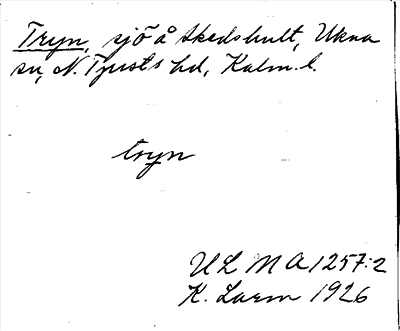 Tryn, sjö å Skedshult, Ukna
sn, N. Tjusts hd, Kalm. l.
tryn
ULMA 1257:2
K. Larm 1926